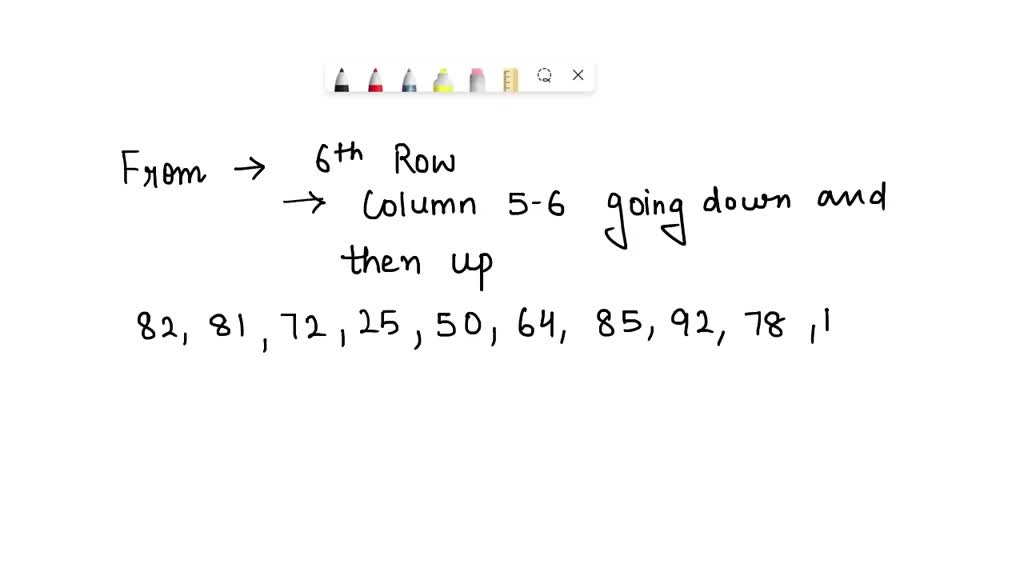 From → 6th Row
→ Column 5-6 going down and
then up
82, 81, 72, 25, 50, 64, 85, 92, 78, 1